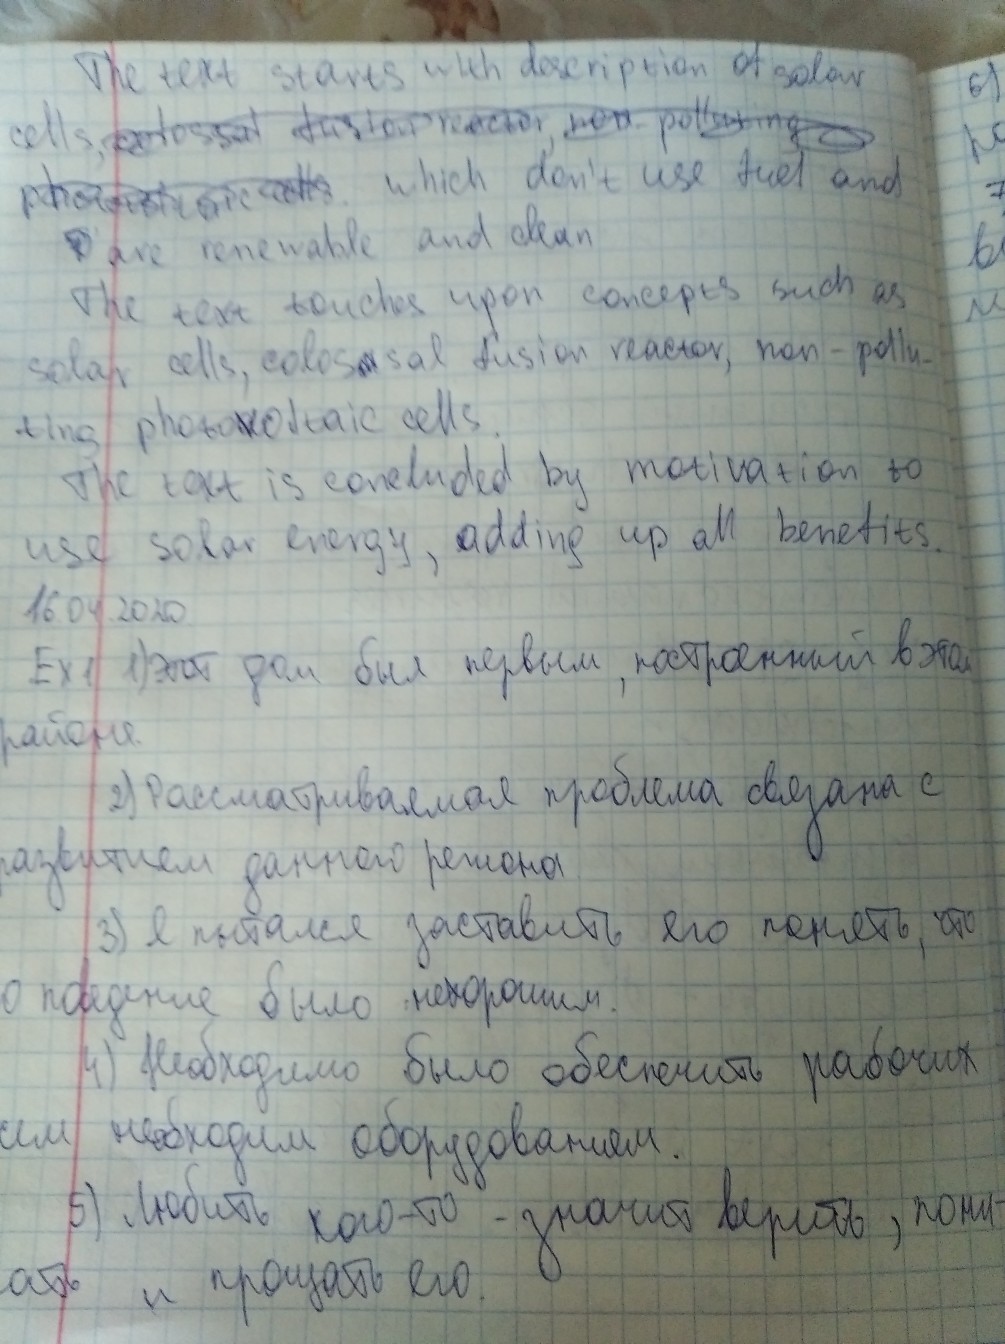 The text starts with description of solar
cells, colossal fusion reactor, non-polluting
photovoltaic cells. which don't use fuel and
are renewable and clean
The text touches upon concepts such as
solar cells, colossal fusion reactor, non-pollu-
ting photovoltaic cells.
The text is concluded by motivation to
use solar energy, adding up all benefits.
16.04.2020
Ex1 1) Этот дом был первым, построенный в этом
районе.
2) Рассматриваемая проблема связана с
развитием данного региона
3) Я пытался заставить его понять, что
о поведение было нехорошим.
4) Необходимо было обеспечить рабочих
необходим оборудованием.
5) Любить кого-то - значит верить, пони-
ать и прощать его.
6)